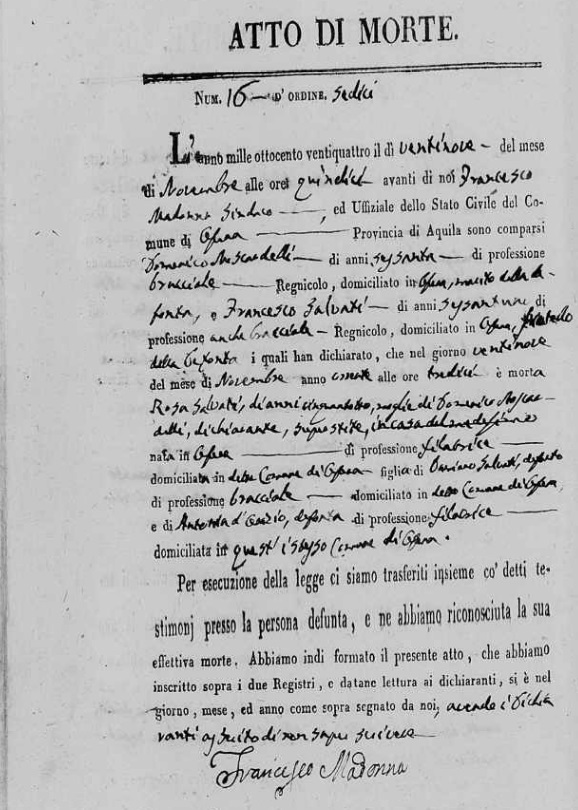 ATTO DI MORTE.
NUM. 16 — D' ORDINE. Sedici
L'anno mille ottocento ventiquattro il dì ventinove — del mese
di Novembre alle ore quindici avanti di noi Francesco
Madonna Sindaco — , ed Uffiziale dello Stato Civile del Co-
mune di Ofena — Provincia di Aquila sono comparsi
Domenico Moscardelli — di anni sysanta — di professione
bracciale — Regnicolo, domiciliato in Ofena, marito della de-
fonta, e Francesco Salvati — di anni sysantuno di
professione anche bracciale — Regnicolo, domiciliato in Ofena, fratello
della defonta i quali han dichiarato, che nel giorno ventinove
del mese di Novembre anno corrente alle ore tredici è morta
Rosa Salvati, di anni cinquantotto, moglie di Domenico Moscar-
delli, dichiarante, superstite, in casa del medesimo
nata in Ofena — di professione filatrice —
domiciliata in detto Comune di Ofena figlia di Salvati, defonto
di professione bracciale — domiciliato in detto Comune di Ofena,
e di Antonia d'Orazio, defonta di professione filatrice —
domiciliata in quest'istesso Comune di Ofena.
Per esecuzione della legge ci siamo trasferiti insieme co' detti te-
stimonj presso la persona defunta, e ne abbiamo riconosciuta la sua
effettiva morte. Abbiamo indi formato il presente atto, che abbiamo
inscritto sopra i due Registri, e datane lettura ai dichiaranti, si è nel
giorno, mese, ed anno come sopra segnato da noi, avendo i dichia
ranti asserito di non saper scrivere
Francesco Madonna